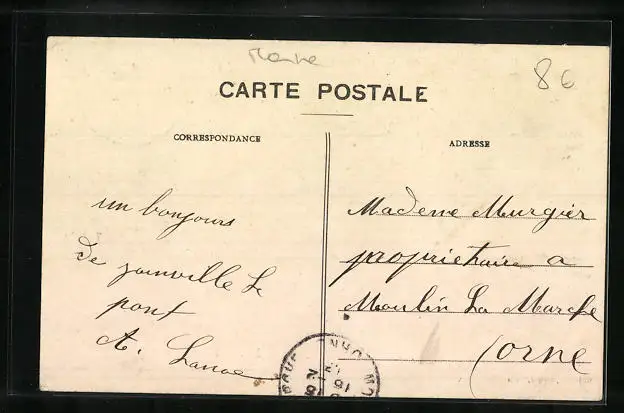 Marne
8 €
CARTE POSTALE
CORRESPONDANCE
ADRESSE
un bonjours
de joinville Le
pont
A. Lanoe
Madame Murgier
proprietaire a
Moulin La Marche
Orne